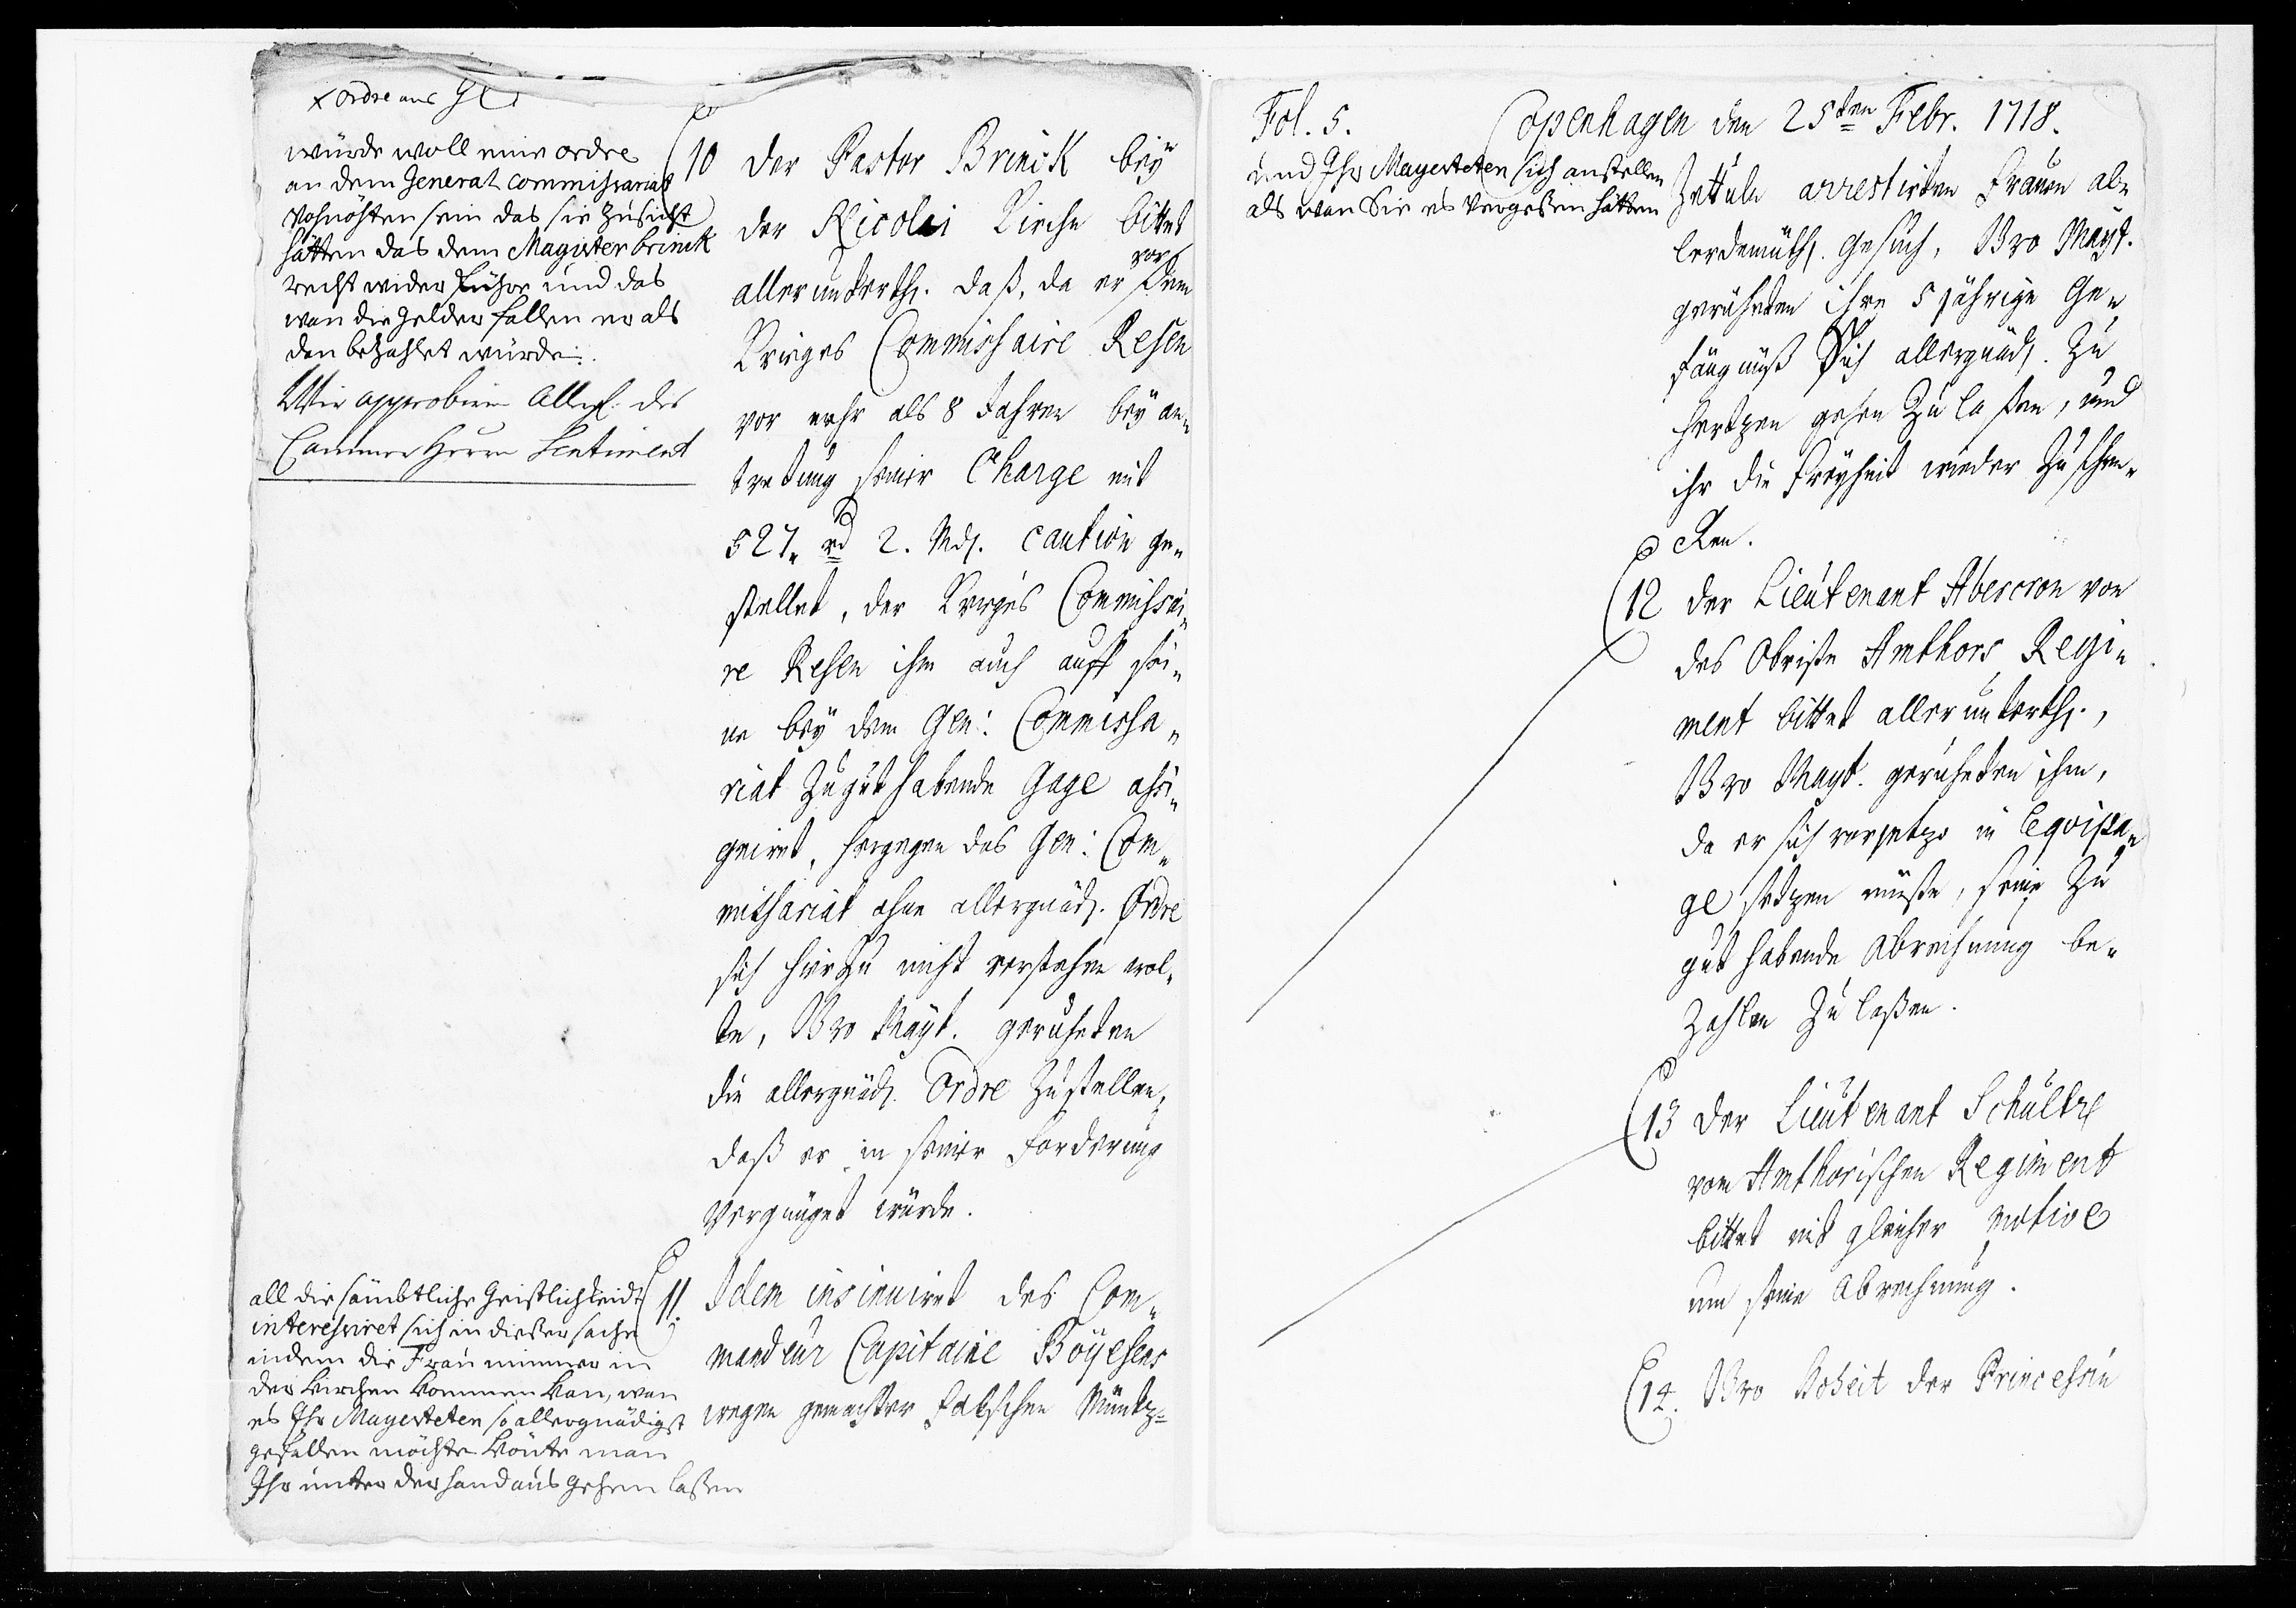 x ordre ans
würde woll eine ordre
an dem General commissariat
vohnöhten sein das sie zusicht
hätten das dem Magister brinck
recht wider führe und das
wan die gelder fallen er als
den bezahlet würde.
Wir approbiren Allergn. des
Cammer Herrn Sentiment
10 Der Pastor Brinck beÿ
der Nicolai Kirche bittet
allerunterth. daß, da er vor dem
Krieges Commissaire Resen
vor mehr als 8 Jahren beÿ an„
tretung seiner Charge mit
527„ rd 2. Md. caution ge„
stellet, der Krieges Commissai„
re Resen ihm auch auff sei„
ne beÿ dem Gen: Commissa„
riat Zuguthabende Gage assi„
gniret, hergegen das Gen: Com„
missariat ohne allergnäd. Ordre
sich hierzu nicht verstehen wol„
te, Ewo Maÿt. geruheten
die allergnäd. Ordre Zustellen,
daß er in seiner Forderung
vergnüget würde.
all die sämbtliche Geistlichkeidt
interessiret sich in dießer sache
indem die Frau nimmer in
der Kirchen kommen kan, wan
es Ihr Mayesteten so allergnädigst
gefallen möchte könte man
Ihr unter der hand aus gehen laßen
11. Idem insinuiret des Com„
mandeur Capitaine Böÿesens
wegen gemachter falschen Müntz=
Fol. 5. Copenhagen den 25ten Febr. 1718.
und Ihr Mayesteten sich anstellen
als wan Sie es vergeßen hätten
Zettuln arrestirten Frauen al„
lerdemüth. Gesuch, Ewo Maÿt.
geruheten ihre 5 jährige Ge„
fängnüß Sich allergnäd. Zu
hertzen gehen Zu laßen, und
ihr die Freÿheit wieder Zu schen„
cken.
12 Der Lieutenant Abercron von
des Obristen Amthors Regi„
ment bittet allerunterth.,
Ewo Maÿt. geruheten ihm,
da er sich vorjetzo in Equipa„
ge setzen müste, seine Zu
gut habende Abrechnung be„
Zahlen Zu laßen.
13 Der Lieutenant Schultze
vom Amthorischen Regiment
bittet mit gleicher motive
um seine Abrechnung.
14. Ewo Hoheit der Princessin